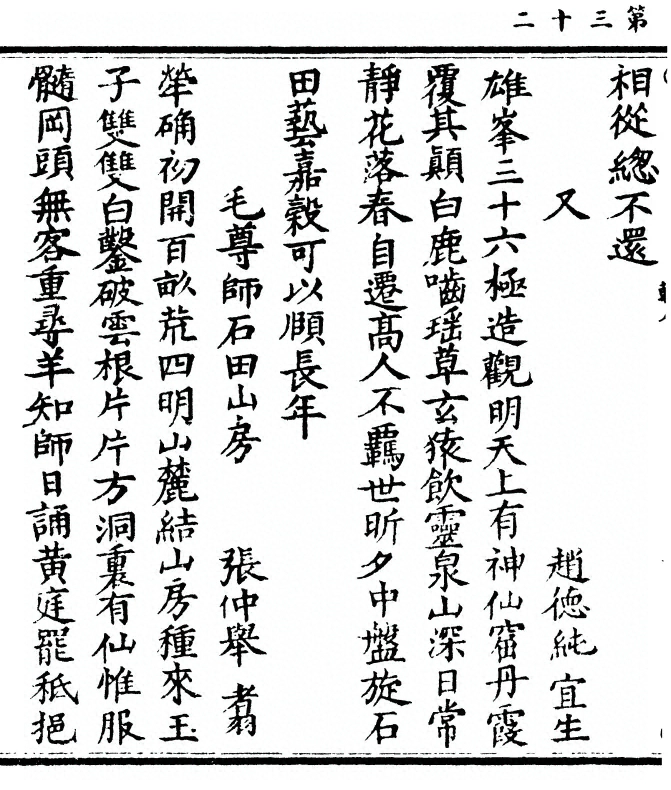 第三十二
相從總不還
又 趙德純宜生
雄峯三十六極造觀明天上有神仙窟丹霞
覆其顛白鹿嚙瑶草玄猿飲靈泉山深日常
靜花落春自遷髙人不羈世昕夕中盤旋石
田藝嘉穀可以頋長年
毛尊師石田山房 張仲舉翥
犖确初開百畝荒四明山麓結山房種來玉
子雙雙白鑿破雲根片片方洞裏有仙惟服
髓岡頭無客重尋羊知師日誦黄庭罷秪挹